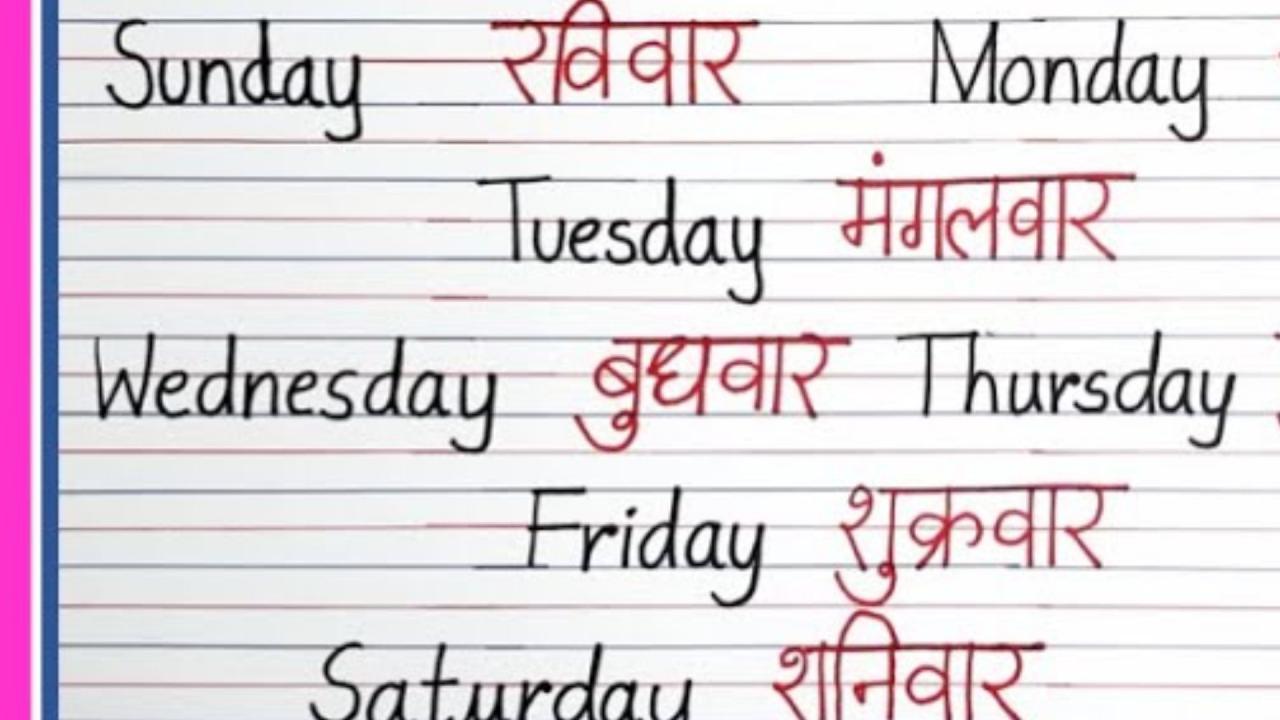 Sunday रविवार Monday
Tuesday मंगलवार
Wednesday बुधवार Thursday
Friday शुक्रवार
Saturday शनिवार